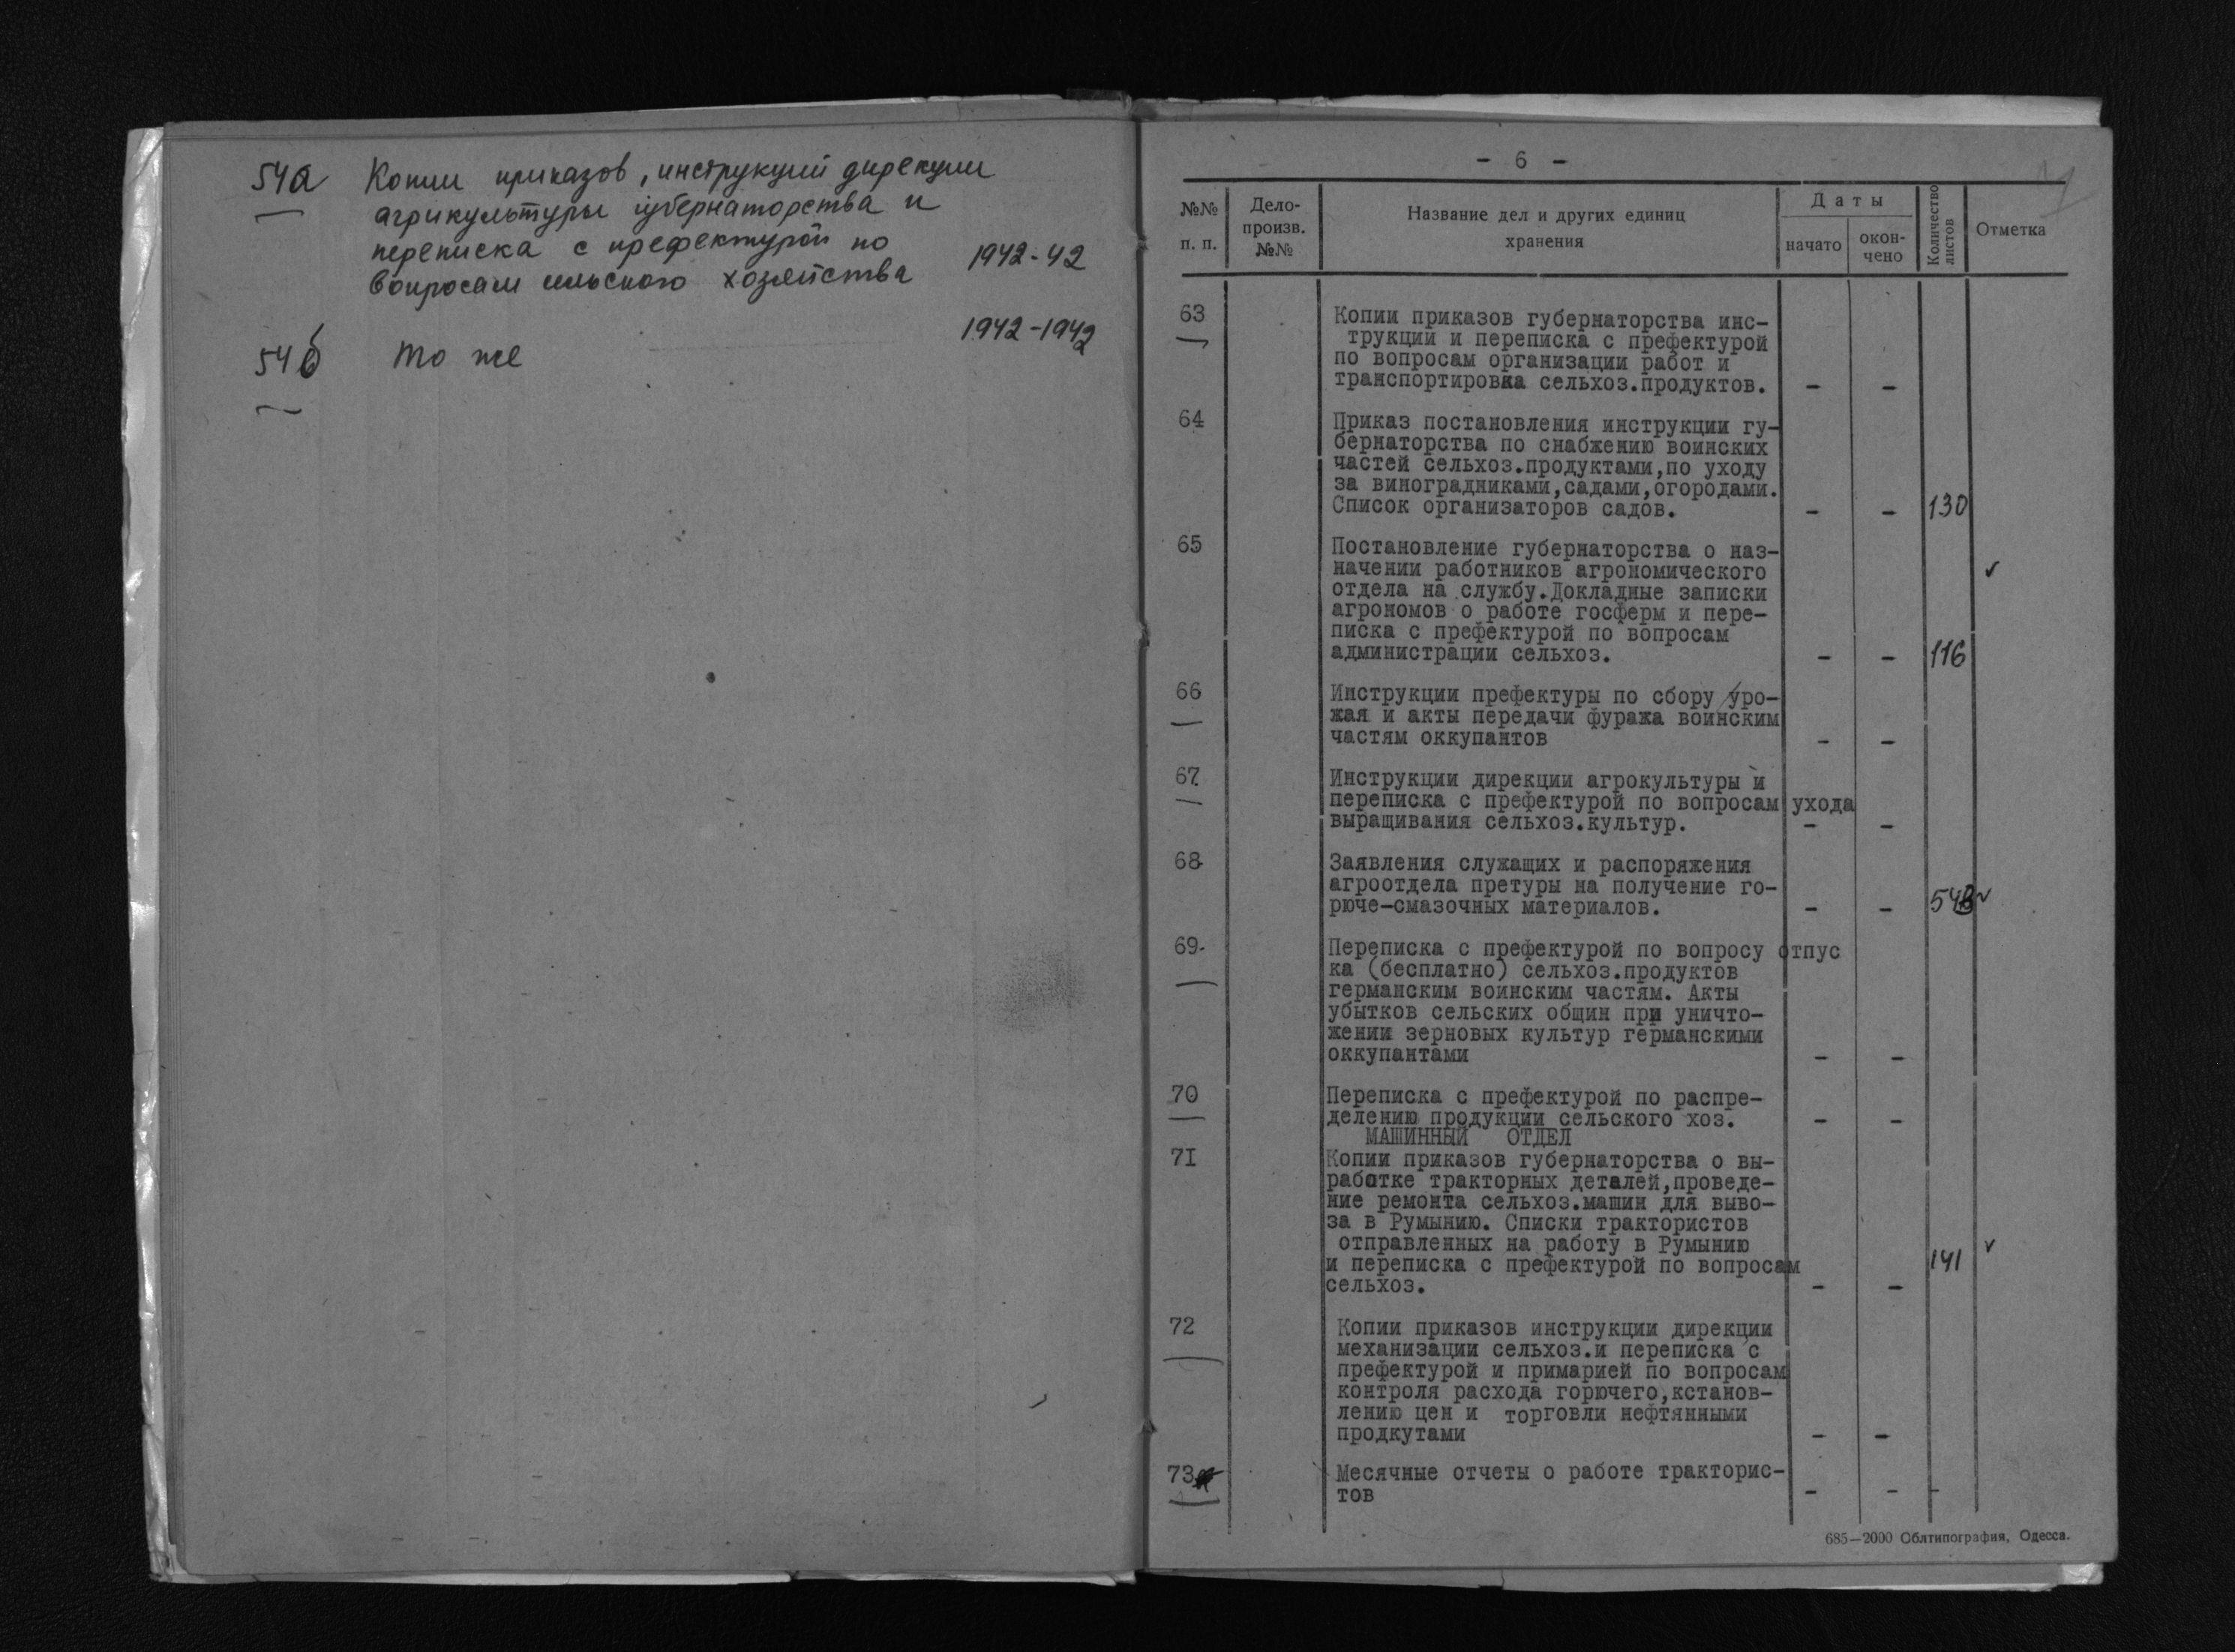 54а Копии приказов, инструкций дирекции
агрикультуры губернаторства и
переписка с префектурой по
вопросам сельского хозяйства 1942-42
54б то же 1942-1942
- 6 -
№№ п. п.
Дело-
произв.
№№
Название дел и других единиц
хранения
Даты
начато
окон-
чено
Количество
листов
Отметка
63 Копии приказов губернаторства инс-
трукции и переписка с префектурой
по вопросам организации работ и
транспортировка сельхоз.продуктов. - -
64 Приказ постановления инструкции гу-
бернаторства по снабжению воинских
частей сельхоз.продуктами,по уходу
за виноградниками,садами,огородами.
Список организаторов садов. - - 130
65 Постановление губернаторства о наз-
начении работников агрономического
отдела на службу.Докладные записки
агрономов о работе госферм и пере-
писка с префектурой по вопросам
администрации сельхоз. - - 116
66 Инструкции префектуры по сбору уро-
жая и акты передачи фуража воинским
частям оккупантов - -
67. Инструкции дирекции агрокультуры и
переписка с префектурой по вопросам ухода
выращивания сельхоз.культур. - -
68 Заявления служащих и распоряжения
агроотдела претуры на получение го-
рюче-смазочных материалов. - -
69. Переписка с префектурой по вопросу отпус
ка (бесплатно) сельхоз.продуктов
германским воинским частям. Акты
убытков сельских общин при уничто-
жении зерновых культур германскими
оккупантами - -
70 Переписка с префектурой по распре-
делению продукции сельского хоз. - -
МАШИННЫЙ ОТДЕЛ
7I Копии приказов губернаторства о вы-
работке тракторных деталей,проведе-
ние ремонта сельхоз.машин для выво-
за в Румынию. Списки трактористов
отправленных на работу в Румынию
и переписка с префектурой по вопросам 141
сельхоз. - -
72 Копии приказов инструкции дирекции
механизации сельхоз.и переписка с
префектурой и примарией по вопросам
контроля расхода горючего,кстанов-
лению цен и торговли нефтянными
продкутами - -
73 Месячные отчеты о работе тракторис-
тов - - -
685—2000 Облтипография, Одесса.